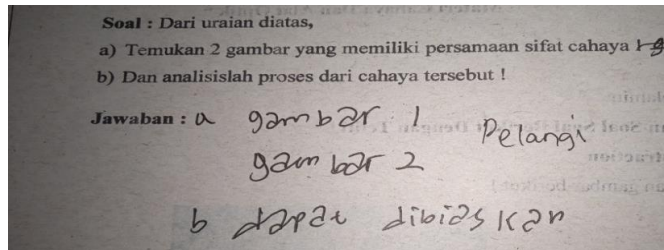 Soal : Dari uraian diatas,
a) Temukan 2 gambar yang memiliki persamaan sifat cahaya
b) Dan analisislah proses dari cahaya tersebut !
Jawaban : a gambar 1 Pelangi
gambar 2
b dapat dibiaskan